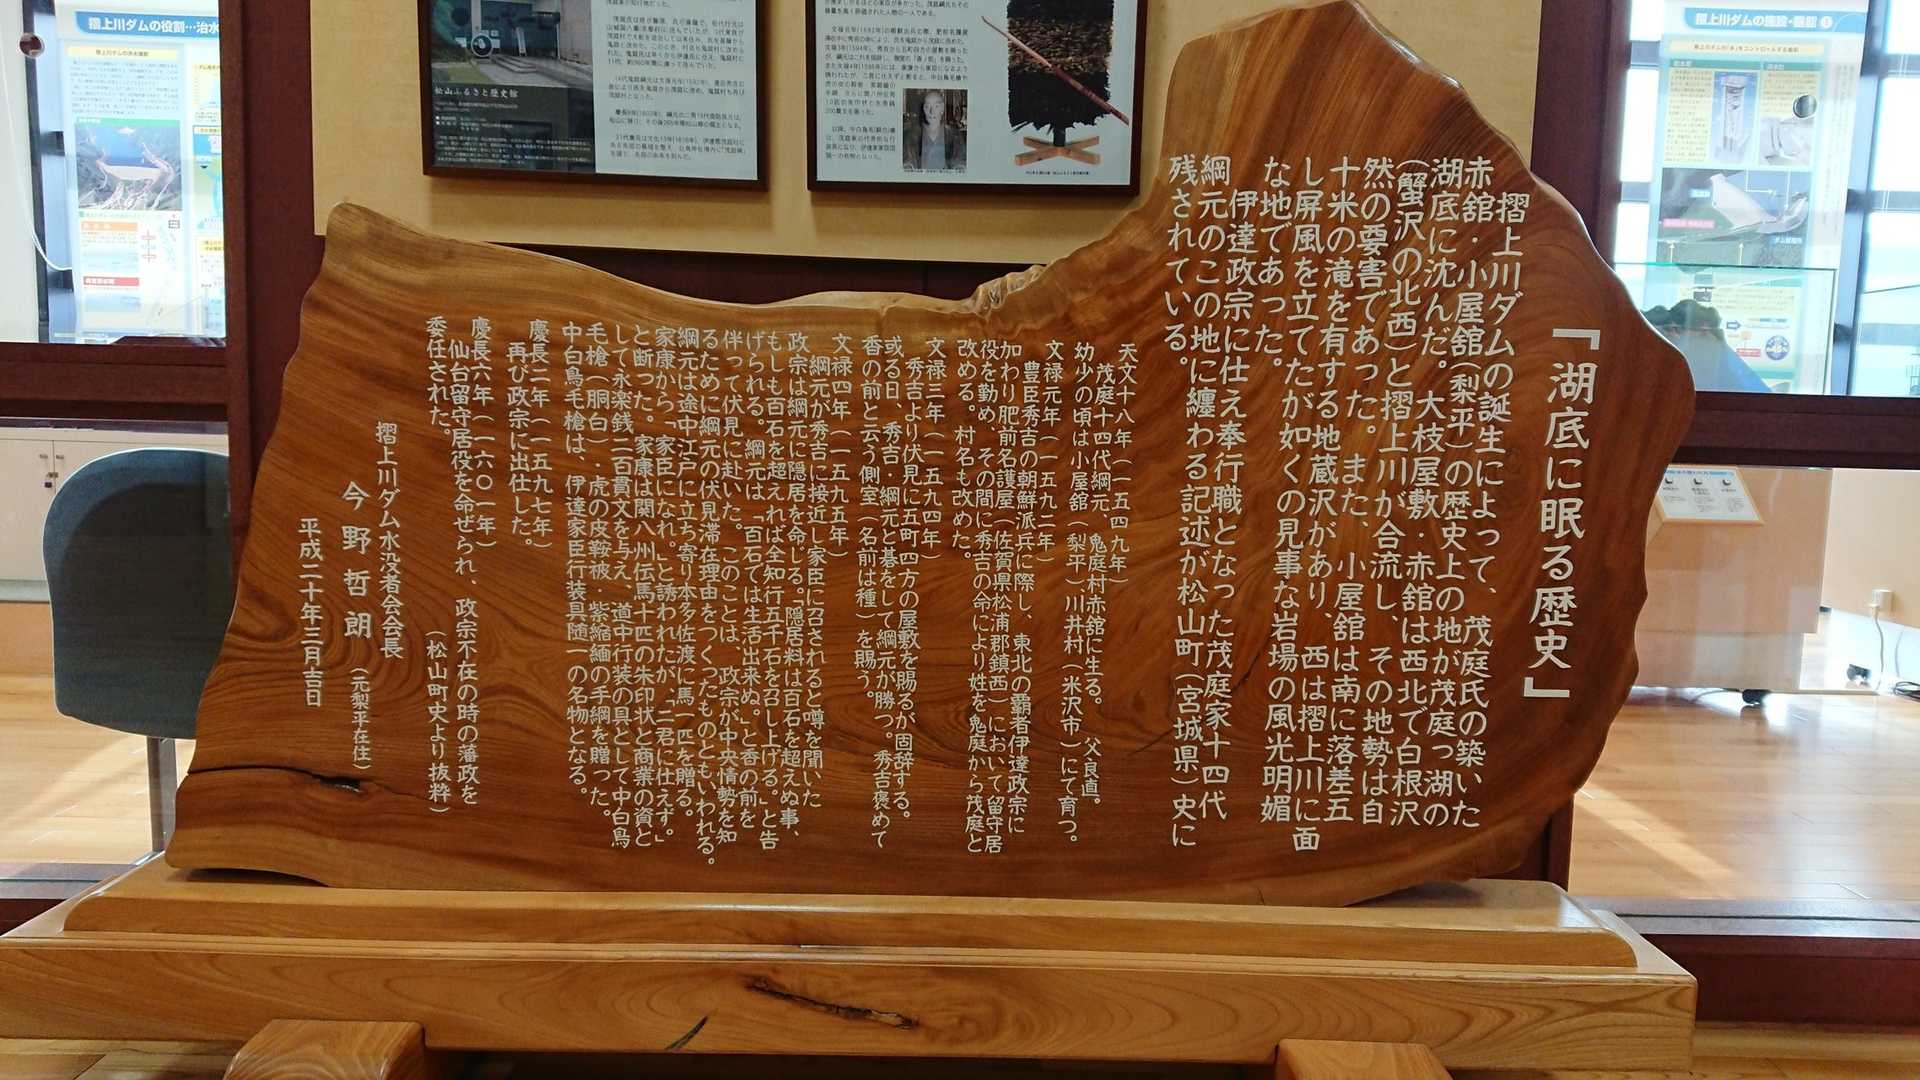 「湖底に眠る歴史」
摺上川ダムの誕生によって、茂庭氏の築いた
赤舘・小屋舘(梨平)の歴史上の地が茂庭っ湖の
湖底に沈んだ。大枝屋敷・赤舘は西北で白根沢
(蟹沢の北西)と摺上川が合流し、その地勢は自
然の要害であった。また、小屋舘は南に落差五
十米の滝を有する地蔵沢があり、西は摺上川に面
し屏風を立てたが如くの見事な岩場の風光明媚
な地であった。
伊達政宗に仕え奉行職となった茂庭家十四代
綱元のこの地に纏わる記述が松山町(宮城県)史に
残されている。
天文十八年(一五四九年)
茂庭十四代綱元、鬼庭村赤舘に生る。 父良直。
幼少の頃は小屋舘(梨平)川井村(米沢市)にて育つ。
文禄元年(一五九二年)
豊臣秀吉の朝鮮派兵に際し、東北の覇者伊達政宗に
加わり肥前名護屋(佐賀県松浦郡鎮西)において留守居
役を勤め、その間に秀吉の命により姓を鬼庭から茂庭と
改める。村名も改めた。
文禄三年(一五九四年)
秀吉より伏見に五町四方の屋敷を賜るが固辞する。
或る日、秀吉・綱元と碁をして綱元が勝つ。秀吉褒めて
香の前と云う側室(名前は種)を賜う。
文禄四年(一五九五年)
綱元が秀吉に接近し家臣に召されると噂を聞いた
政宗は綱元に隠居を命じる。「隠居料は百石を超えぬ事、
もしも百石を超えれば全知行五千石を召し上げる。」と告
げられる。綱元は「百石では生活出来ぬ。」と香の前を
伴って伏見に赴いた。このことは、政宗が中央情勢を知
るために綱元の伏見滞在理由をつくったものともいわれる。
綱元は途中江戸に立ち寄り本多佐渡に馬一匹を贈る。
家康から「家臣になれ。」と誘われたが、「二君に仕えず。」
と断った。家康は関八州伝馬十匹の朱印状と商業の資と
して永楽銭二百貫文を与え、道中行装の具として中白鳥
毛槍(胴白)・虎の皮鞍被・紫縮緬の手綱を贈った。
中白鳥毛槍は、伊達家臣行装具随一の名物となる。
慶長二年(一五九七年)
再び政宗に出仕した。
慶長六年(一六〇一年)
仙台留守居役を命ぜられ、政宗不在の時の藩政を
委任された。
(松山町史より抜粋)
摺上川ダム水没者会会長
今野哲朗(元梨平在住)
平成二十年三月吉日
摺上川ダムの役割…治水
摺上川ダムの施設・機能①
松山ふるさと歴史館